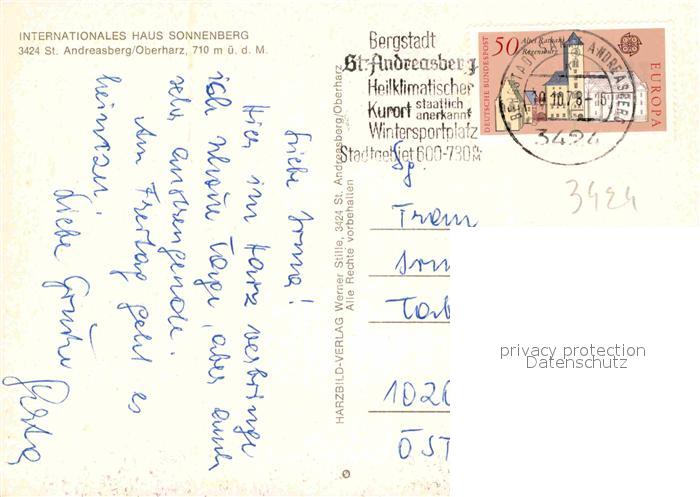 INTERNATIONALES HAUS SONNENBERG
3424 St. Andreasberg/Oberharz, 710 m ü. d. M.
Liebe Irma!
Hier im Harz verbringe
ich schöne Tage, aber auch
sehr anstrengende.
Am Freitag geht es
heimzu.
Liebe Grüße
Herta
HARZBILD-VERLAG Werner Stille, 3424 St. Andreasberg/Oberharz
Alle Rechte vorbehalten
Bergstadt
St. Andreasberg
Heilklimatischer
Kurort staatlich anerkannt
Wintersportplatz
Stadtgebiet 600-730 m
DEUTSCHE BUNDESPOST
50
Altes Rathaus
Regensburg
EUROPA
BERGSTADT SANKT ANDREASBERG
10.78
3424
3424
Frau
Irm
1020
ÖST
privacy protection
Datenschutz